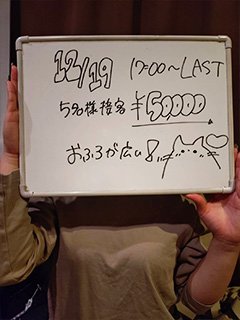 12/19 17:00～LAST
5名様接客 ¥50,000
おふろが広い!